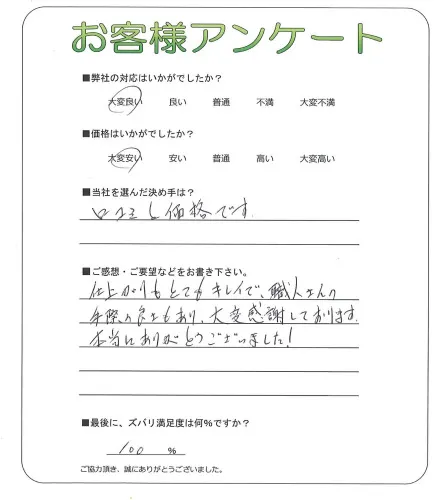 お客様アンケート
■弊社の対応はいかがでしたか？
大変良い 良い 普通 不満 大変不満
■価格はいかがでしたか？
大変安い 安い 普通 高い 大変高い
■当社を選んだ決め手は？
口コミと価格です。
■ご感想・ご要望などをお書き下さい。
仕上がりもとてもキレイで、職人さんの
手際の良さもあり、大変感謝しております。
本当にありがとうございました！
■最後に、ズバリ満足度は何％ですか？
100 ％
ご協力頂き、誠にありがとうございました。